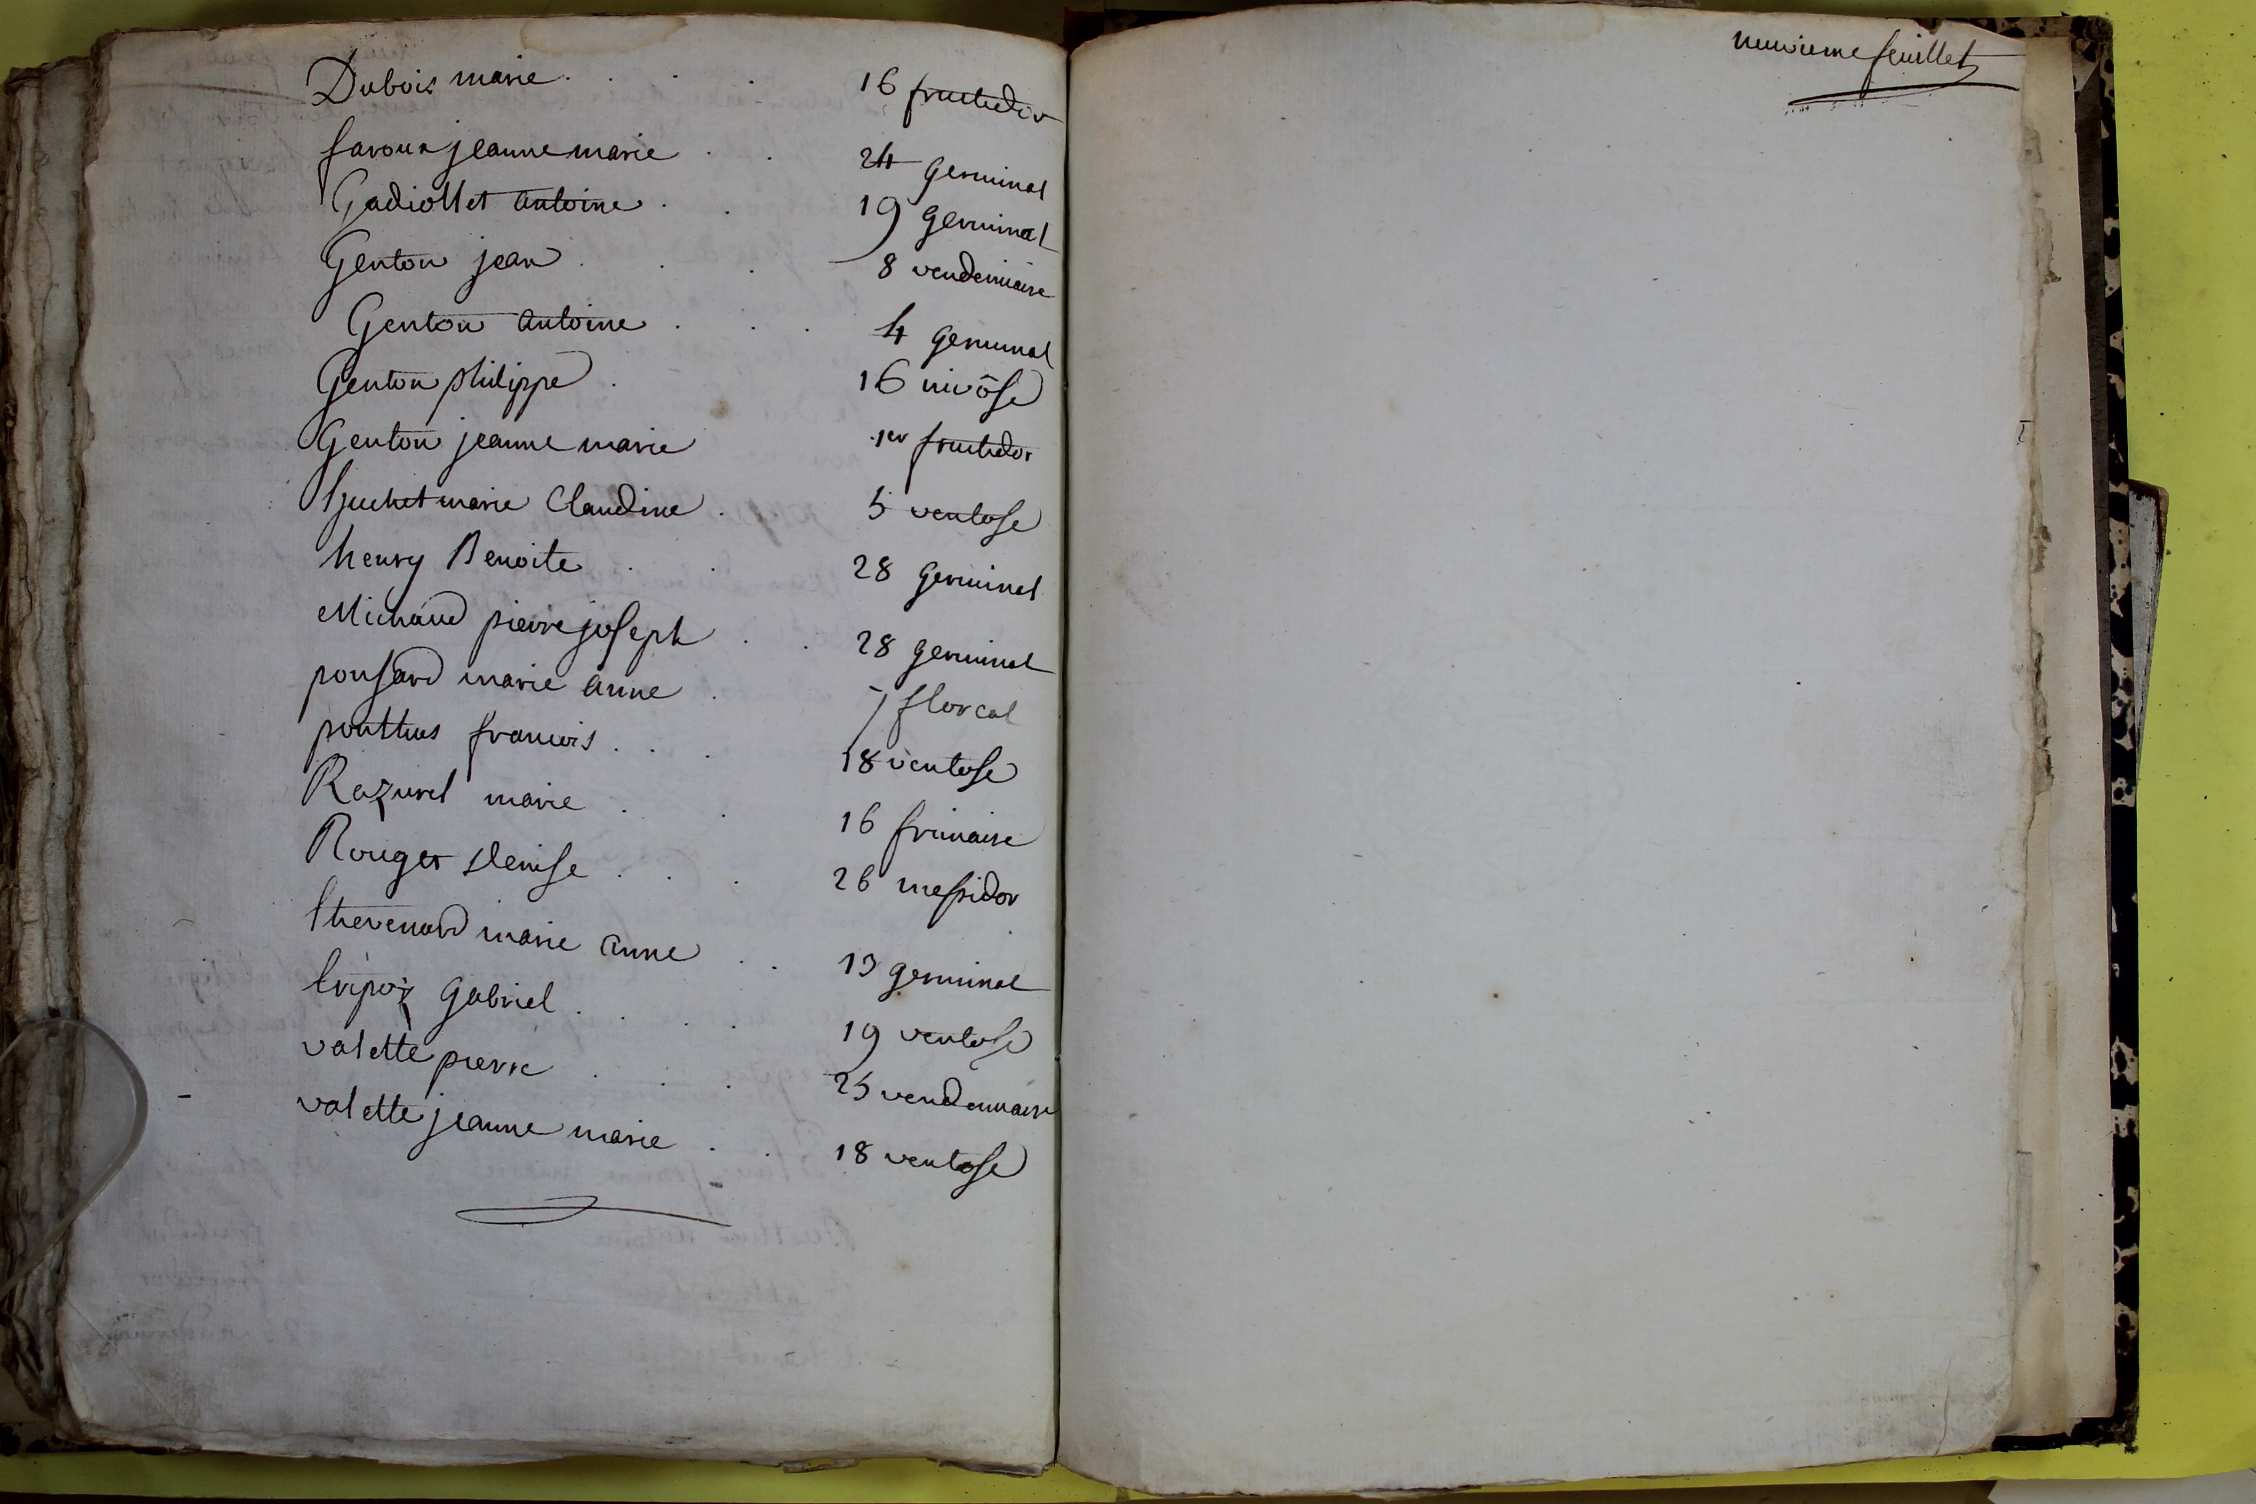 Dubois marie . . . 16 fructidor
favoux jeanne marie . . 24 germinal
Gadiollet antoine . . 19 germinal
Genton jean . . . 8 vendemiaire
Genton antoine . . . 4 germinal
Genton philippe . 16 nivôse
Genton jeanne marie 1er fructidor
Guchet marie Claudine . 5 ventose
henry Benoite . . 28 germinal
Michaud pierre joseph . . 28 germinal
ponsard marie anne . 7 floreal
ponthus francois . . . 18 ventose
Razurel marie . . 16 frimaire
Rouget Denise . . . 26 messidor
thevenard marie anne . . 13 germinal
tripoz Gabriel . . . . 19 ventose
valette pierre . . . 25 vendemiaire
valette jeanne marie . . 18 ventose
neuvieme feuillet